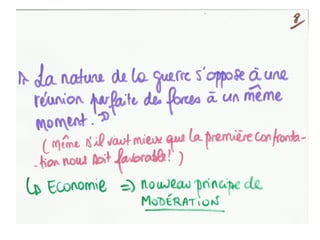 8
⇒ La nature de la guerre s'oppose à une
réunion parfaite des forces à un même
moment. »
(même s'il vaut mieux que la première confronta-
-tion nous soit favorable ! )
↳ Economie => nouveau principe de
MODÉRATION